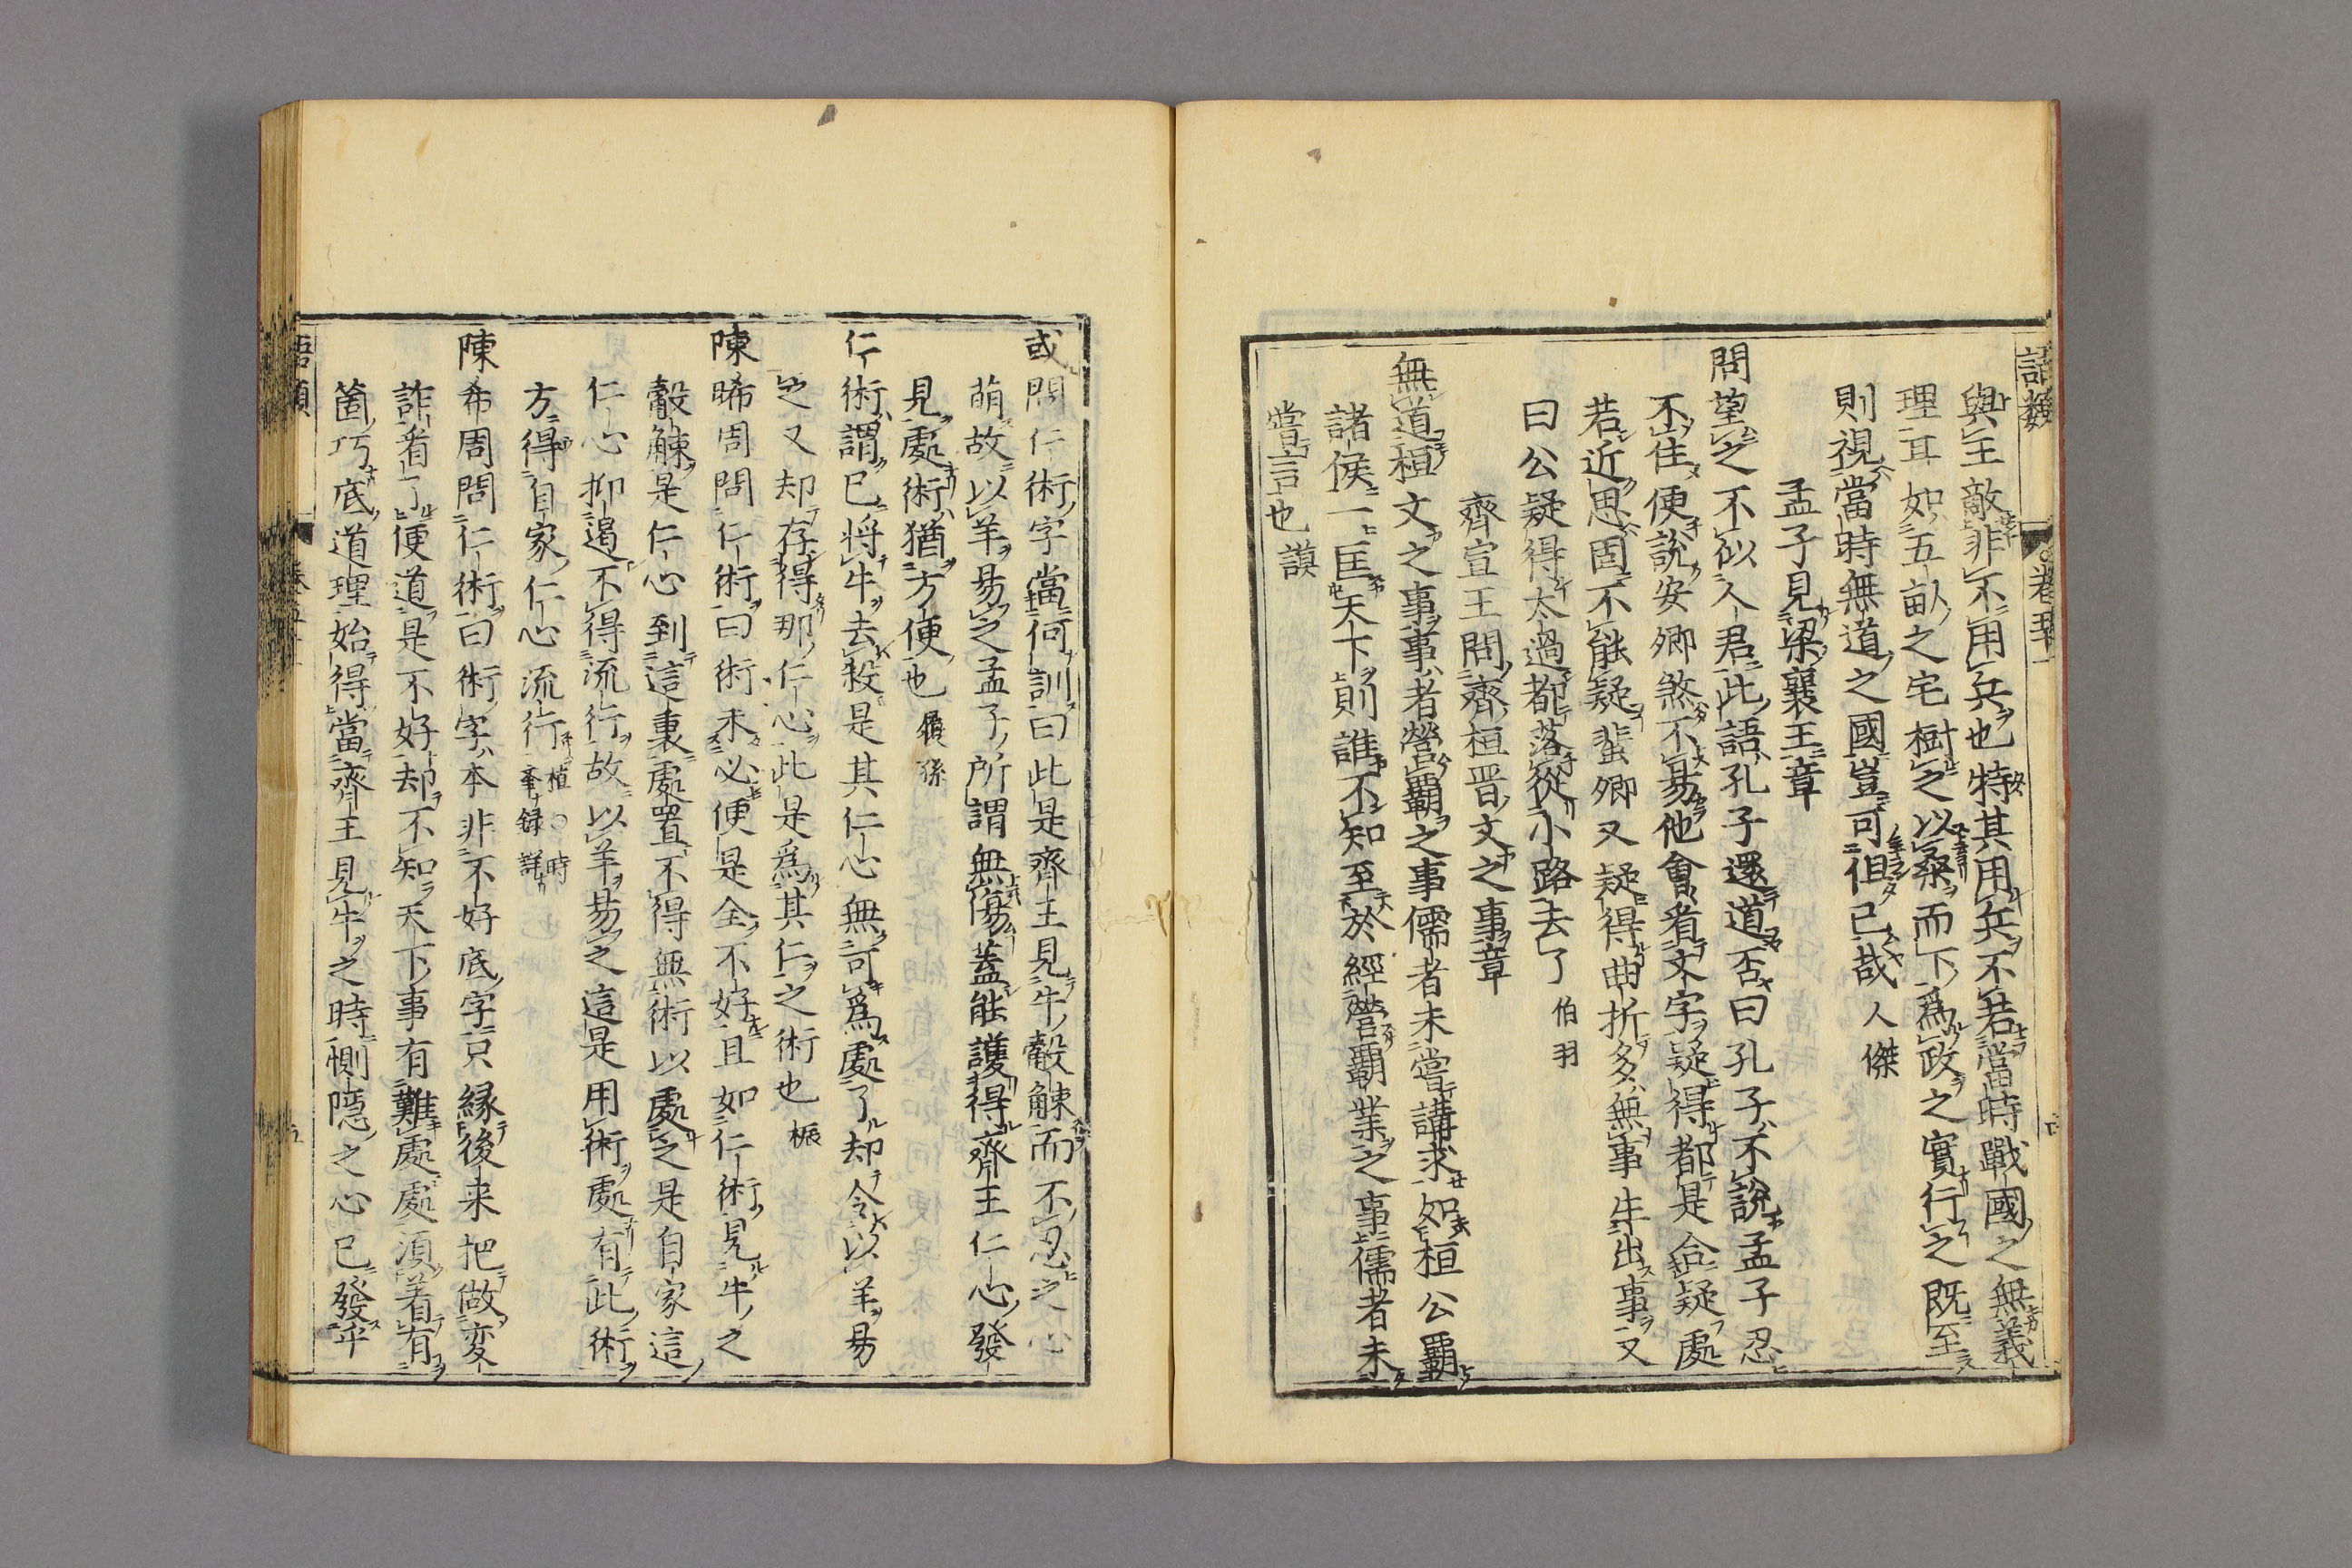 語類 卷五十一
與王敵非不用兵也特其用兵不若當時戰國之無義
理耳如五畝之宅樹之以桑而下爲政之實行之既至
則視當時無道之國豈可但已哉 人傑
孟子見梁襄王章
問望之不似人君此語孔子還道否曰孔子不說孟子忍
不住便說安卿煞不易他會看文字疑得都是合疑處
若近思固不能疑蜚卿又疑得曲折多無事生出事又
曰公疑得太過都落從小路去了 伯羽
齊宣王問齊桓晋文之事章
無道桓文之事事者營霸之事儒者未嘗講求如桓公霸
諸侯一匡天下則誰不知至於經營霸業之事儒者未
嘗言也 謨
或問仁術字當何訓曰此是齊王見牛觳觫而不忍之心
萌故以羊易之孟子所謂無傷蓋能護得齊王仁心發
見處術猶方便也 履孫
仁術謂已將牛去殺是其仁心無可爲處了却令以羊易
之又却存得那仁心此是爲其仁之術也 振
陳晞周問仁術曰術未必便是全不好且如仁術見牛之
觳觫是仁心到這裏處置不得無術以處之是自家這
仁心抑遏不得流行故以羊易之這是用術處有此術
方得自家仁心流行 植○時舉録詳
陳希周問仁術曰術字本非不好底字只縁後来把做变
詐看了便道是不好却不知天下事有難處處須着有
箇巧底道理始得當齊王見牛之時惻隱之心已發乎
語類 卷五十一